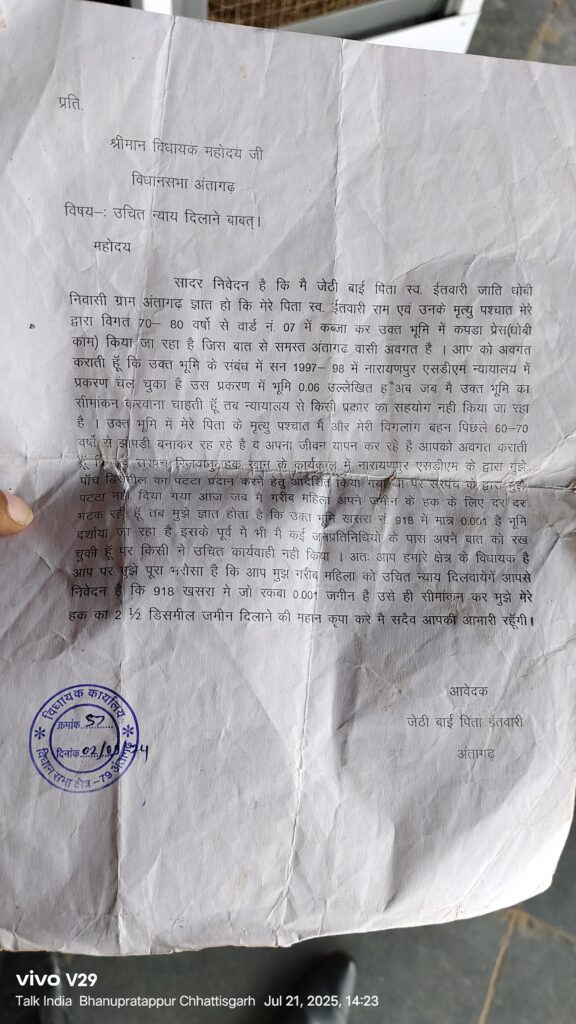 प्रति.
श्रीमान विधायक महोदय जी
विधानसभा अंतागढ़
विषय–: उचित न्याय दिलाने बाबत्।
महोदय
सादर निवेदन है कि मै जेठी बाई पिता स्व. ईतवारी जाति धोबी
निवासी ग्राम अंतागढ ज्ञात हो कि मेरे पिता स्व. ईतवारी राम एवं उनके मृत्यु पश्चात मेरे
द्वारा विगत 70– 80 वर्षो से वार्ड नं. 07 में कब्जा कर उक्त भूमि में कपडा प्रेस(धोबी
काम) किया जा रहा है जिस बात से समस्त अंतागढ वासी अवगत है । आप को अवगत
कराती हूँ कि उक्त भूमि के संबंध में सन 1997– 98 में नारायणपुर एसडीएम न्यायालय में
प्रकरण चल चुका है उस प्रकरण में भूमि 0.06 उल्लेखित है अब जब मै उक्त भूमि का
सीमांकन करवाना चाहती हूँ तब न्यायालय से किसी प्रकार का सहयोग नही किया जा रहा
है । उक्त भूमि में मेरे पिता के मृत्यु पश्चात मै और मेरी विगलांग बहन पिछले 60–70
वर्षो से झोपड़ी बनाकर रह रहे है व अपना जीवन यापन कर रहे है आपको अवगत कराती
हूँ सरपंच रिजवान हक के कार्यकाल में नारायणपुर एसडीएम के द्वारा मुझे
पाँच डिसमिल का पटटा प्रदान करने हेतु आदेशित किया गया था पर सरपंच के द्वारा मुझे
पटटा नही दिया गया आज जब मै गरीब महिला अपने जमीन के हक के लिए दर दर
भटक रही हूँ तब मुझे ज्ञात होता है कि उक्त भूमि खसरा नं. 918 में मात्र 0.001 है भूमि
दर्शाया जा रहा है। इसके पूर्व मे भी मै कई जनप्रतिनिधियो के पास अपने बात को रख
चुकी हूँ पर किसी ने उचित कार्यवाही नही किया । अतः आप हमारे क्षेत्र के विधायक है
आप पर मुझे पूरा भरोसा है कि आप मुझ गरीब महिला को उचित न्याय दिलवायेगें आपसे
निवेदन है कि 918 खसरा मे जो रकबा 0.001 जगीन है उसे ही सीमांकन कर मुझे मेरे
हक का 2 ½ डिसमील जमीन दिलाने की महान कृपा करे मै सदैव आपकी आभारी रहूँगी।
आवेदक
जेठी बाई पिता ईतवारी
अंतागढ़
विधायक कार्यालय
क्रमांक 57
दिनांक 02/09/24
विधान सभा क्षेत्र-79 अंतागढ़
vivo V29
Talk India Bhanupratappur Chhattisgarh Jul 21, 2025, 14:23